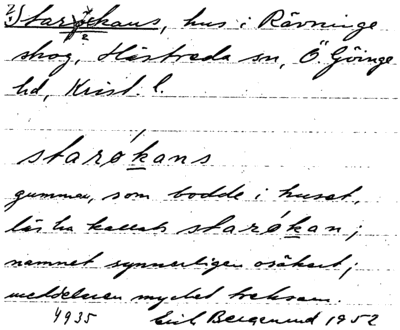 Starökans, hus i Rävninge
skog, Hästveda sn, Ö. Göinge
hd, Krist. l.
starøkans
gumman, som bodde i huset,
lär ha kallats starøkan;
namnet synnerligen osäkert;
meddelaren mycket tveksam.
4935 Erik Bergerud 1952